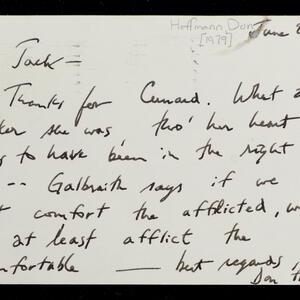 Hoffmann, Don
[1979]
June 8
Jack—
Thanks for Cunard. What a
ker she was, tho' her heart
to have been in the right
-- Galbraith says if we
comfort the afflicted, w
at least afflict the
mfortable — best regards
Don H